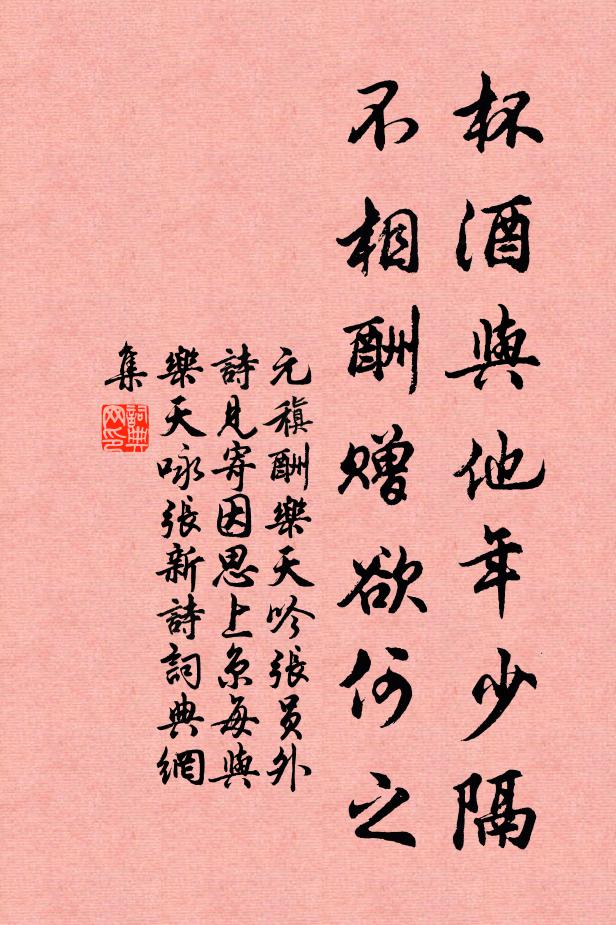 杯酒與他年少隔
不相酬贈欲何之
元稹酬樂天吟張員外
詩見寄因思上京每與
樂天詠張新詩詞典網
集
詞典網印